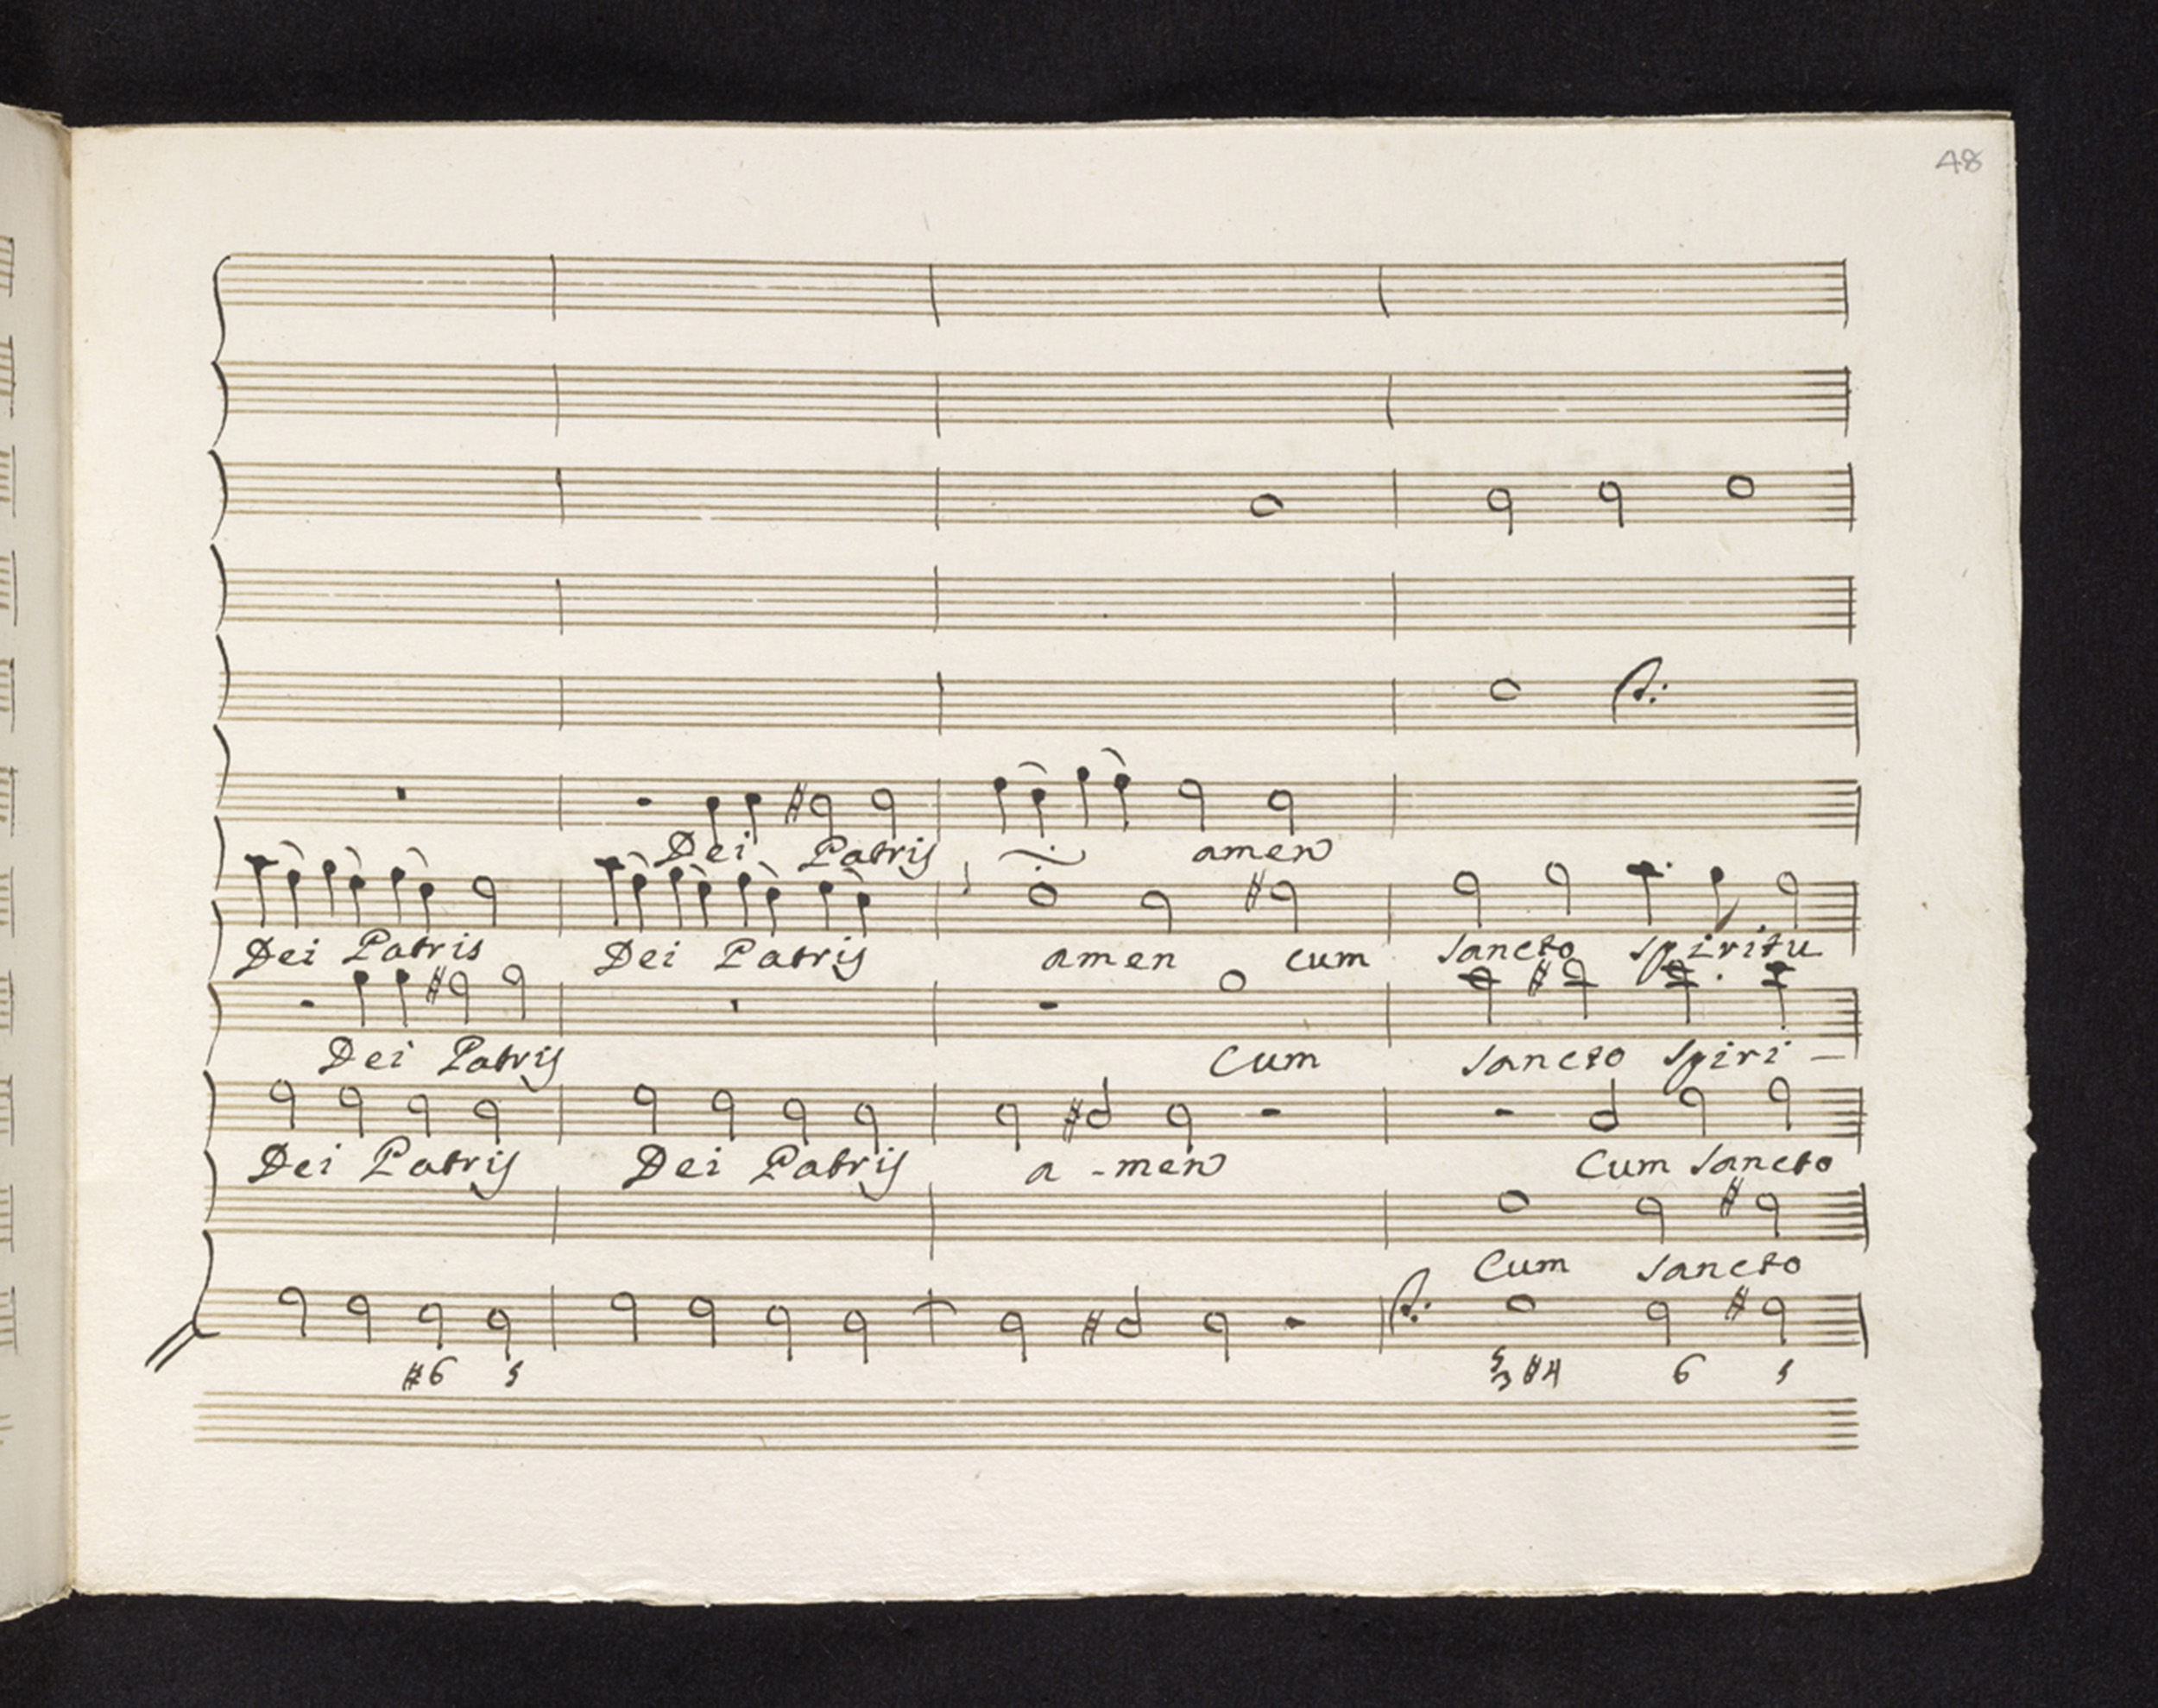 48
Dei Patris amen
Dei Patris Dei Patris amen cum Sancto Spiritu
Dei Patris Cum Sancto Spiri –
Dei Patris Dei Patris a - men Cum Sancto
Cum Sancto
#6 5 6 5